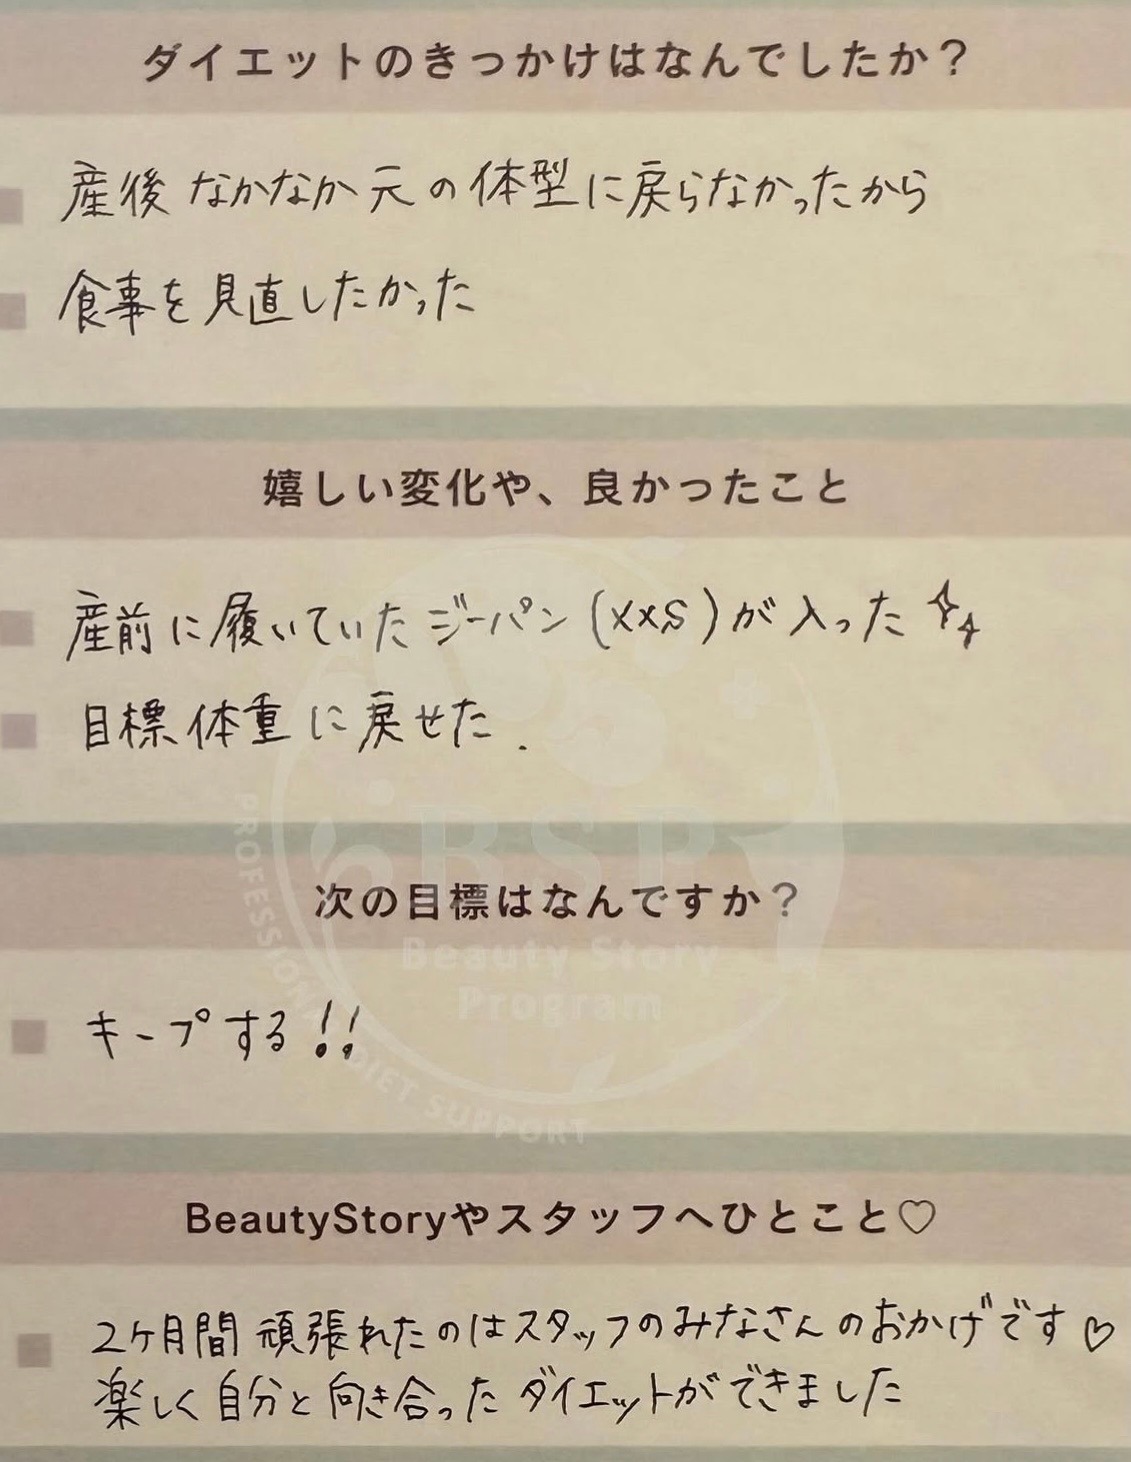 ダイエットのきっかけはなんでしたか？
産後なかなか元の体型に戻らなかったから
食事を見直したかった
嬉しい変化や、良かったこと
産前に履いていたジーパン(XXS)が入った
目標体重に戻せた.
次の目標はなんですか？
キープする!!
BeautyStoryやスタッフへひとこと♡
2ヶ月間頑張れたのはスタッフのみなさんのおかげです♡
楽しく自分と向き合ったダイエットができました
BSP
Beauty Story
Program
PROFESSIONAL DIET SUPPORT